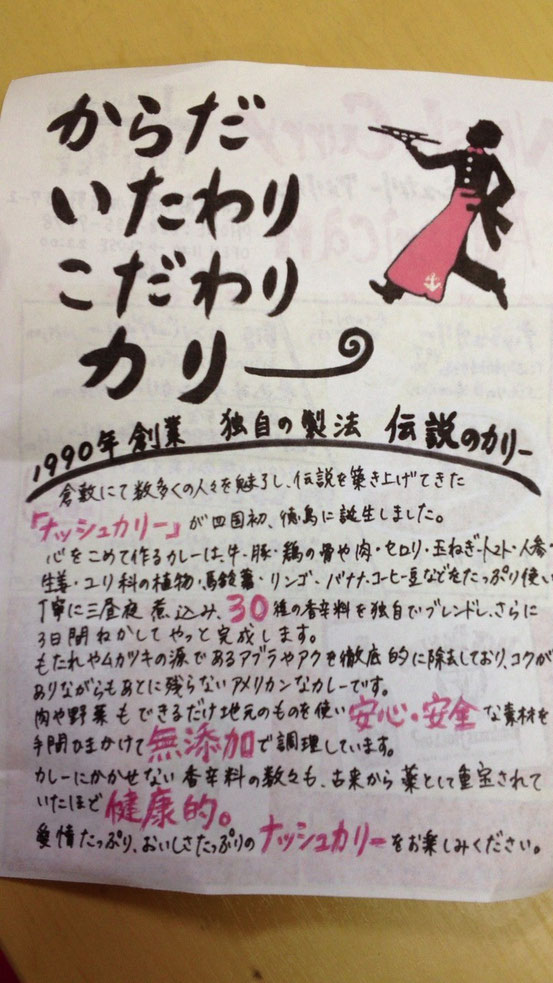 からだ
いたわり
こだわり
カリー
1990年創業 独自の製法 伝説のカリー
倉敷にて数多くの人々を魅了し、伝説を築き上げてきた
「ナッシュカリー」が四国初、徳島に誕生しました。
心をこめて作るカレーは、牛・豚・鶏の骨や肉・セロリ・玉ねぎ・トマト・人参・
生姜・ユリ科の植物・馬鈴薯・リンゴ・バナナ、コーヒー豆などをたっぷり使い
丁寧に三昼夜煮込み、30種の香辛料を独自でブレンドし、さらに
3日間ねかしてやっと完成します。
もたれやムカツキの源であるアブラやアクを徹底的に除去しており、コクが
ありながらもあとに残らないアメリカンなカレーです。
肉や野菜もできるだけ地元のものを使い安心・安全な素材を
手間ひまかけて無添加で調理しています。
カレーにかかせない香辛料の数々も、古来から薬として重宝されて
いたほど健康的。
愛情たっぷり、おいしさたっぷりのナッシュカリーをお楽しみください。